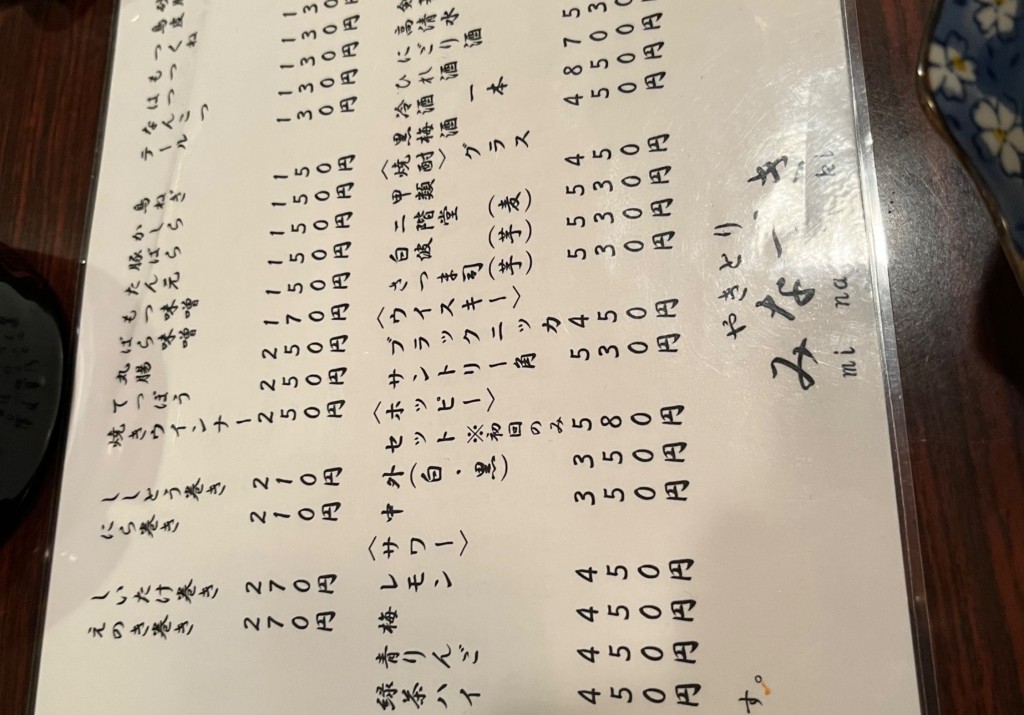 つくね
もつ
はつ
なんこつ
テール
130円
130円
130円
鳥ねぎ 150円
かしら 150円
豚ばら 150円
たん元 150円
もつ味噌
ばら味噌
丸腸
てっぽう
焼きウインナー
170円
250円
250円
250円
ししとう巻き 210円
にら巻き 210円
しいたけ巻き 270円
えのき巻き 270円
高清水
にごり酒
ひれ酒 700円
冷酒 一本 850円
黒梅酒 450円
〈焼酎〉
甲類 グラス 450円
二階堂(麦) 530円
白波(芋) 530円
さつま司(芋) 530円
〈ウイスキー〉
ブラックニッカ 450円
サントリー角 530円
〈ホッピー〉
セット※初回のみ 580円
外(白・黒) 350円
中 350円
〈サワー〉
レモン 450円
梅 450円
青りんご 450円
緑茶ハイ 450円
やきとり
みなーき
mi na ki
す。